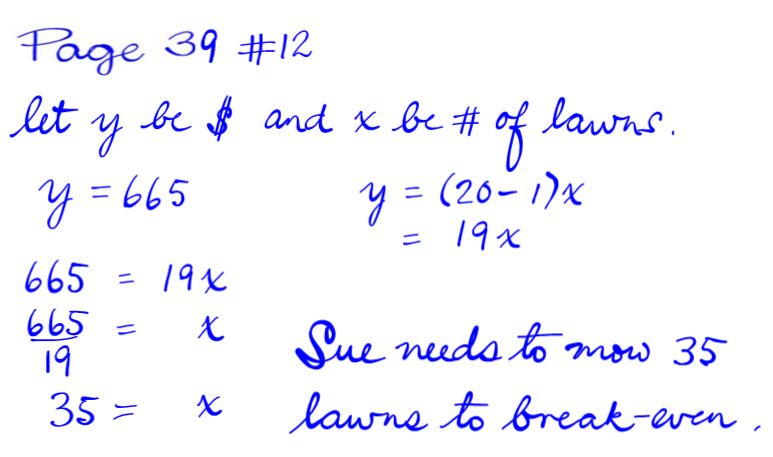 Page 39 #12
let y be $ and x be # of lawns.
y = 665
y = (20-1)x
= 19x
665 = 19x
665/19 = x
35 = x
Sue needs to mow 35
lawns to break-even.